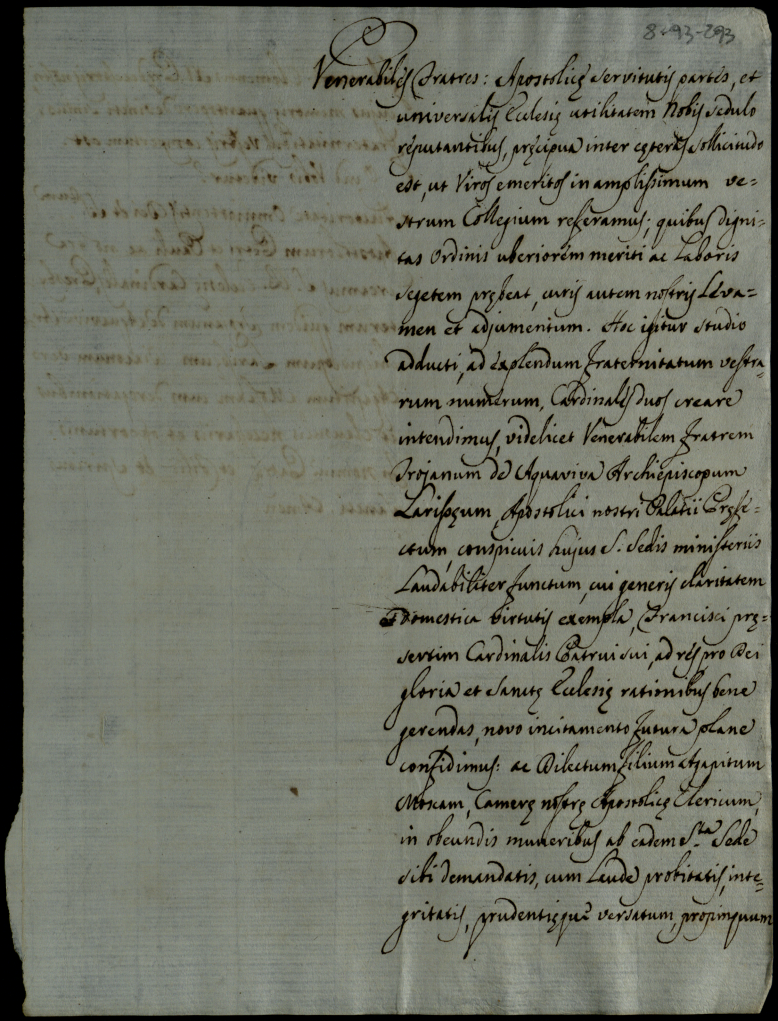 8-93-293
Venerabiles Fratres: Apostolicę servitutis partes, et
universalis Ecclesię utilitatem Nobis sedulo
reputantibus, pręcipua inter cęteras sollicitudo
est, ut Viros emeritos in amplissimum ve=
strum Collegium referamus; quibus digni=
tas Ordinis uberiorem meriti ac Laboris
segetem prębeat, curis autem nostris Leva=
men et adjumentum. Hoc igitur studio
adducti, ad explendum Fraternitatum vestra=
rum numerum, Cardinales duos creare
intendimus, videlicet Venerabilem Fratrem
Trojanum de Aquaviva Archiepiscopum
Larissęum, Apostolici nostri Palatii Pręfe=
ctum, conspicuis hujus S. Sedis ministeriis
Laudabiliter functum, cui generis claritatem
Domestica virtutis exempla, Francisci prę=
sertim Cardinalis Patrui sui, ad res pro Dei
gloria et Sanctę Ecclesię rationibus bene
gerendas, novo incitamento futura plane
confidimus: ac Dilectum filium Agapitum
Moscam, Camerę nostrę Apostolicę Clericum,
in obeundis muneribus ab eadem S.ta Sede
sibi demandatis, cum Laude probitatis, inte=
gritatis, prudentięque versatum, propinquum